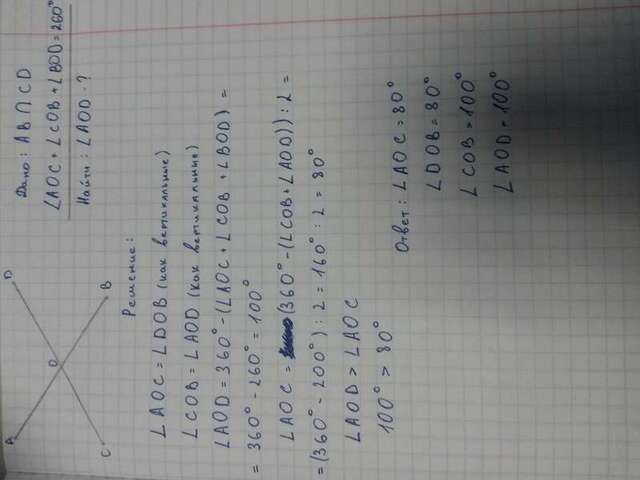 A
D
O
C
B
Дано: AB ∩ CD
∠AOC + ∠COB + ∠BOD = 260°
Найти: ∠AOD - ?
Решение:
∠AOC = ∠DOB (как вертикальные)
∠COB = ∠AOD (как вертикальные)
∠AOD = 360° - (∠AOC + ∠COB + ∠BOD) =
= 360° - 260° = 100°
∠AOC = (360° - (∠COB + ∠AOD)) : 2 =
= (360° - 200°) : 2 = 160° : 2 = 80°
∠AOD > ∠AOC
100° > 80°
Ответ: ∠AOC = 80°
∠DOB = 80°
∠COB = 100°
∠AOD = 100°